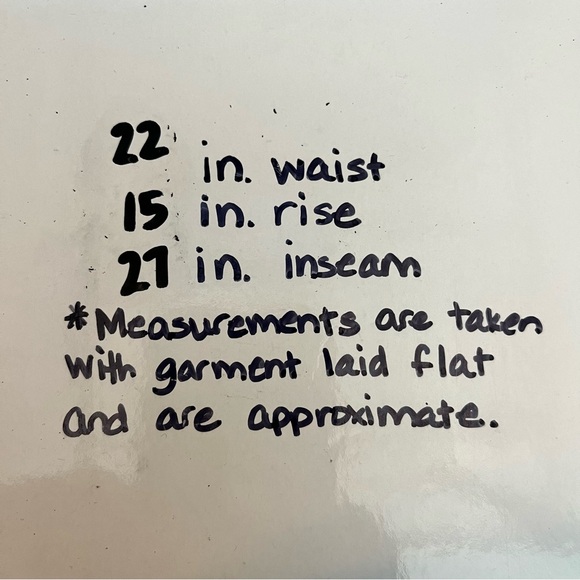 22 in. waist
15 in. rise
27 in. inseam
*Measurements are taken
with garment laid flat
and are approximate.